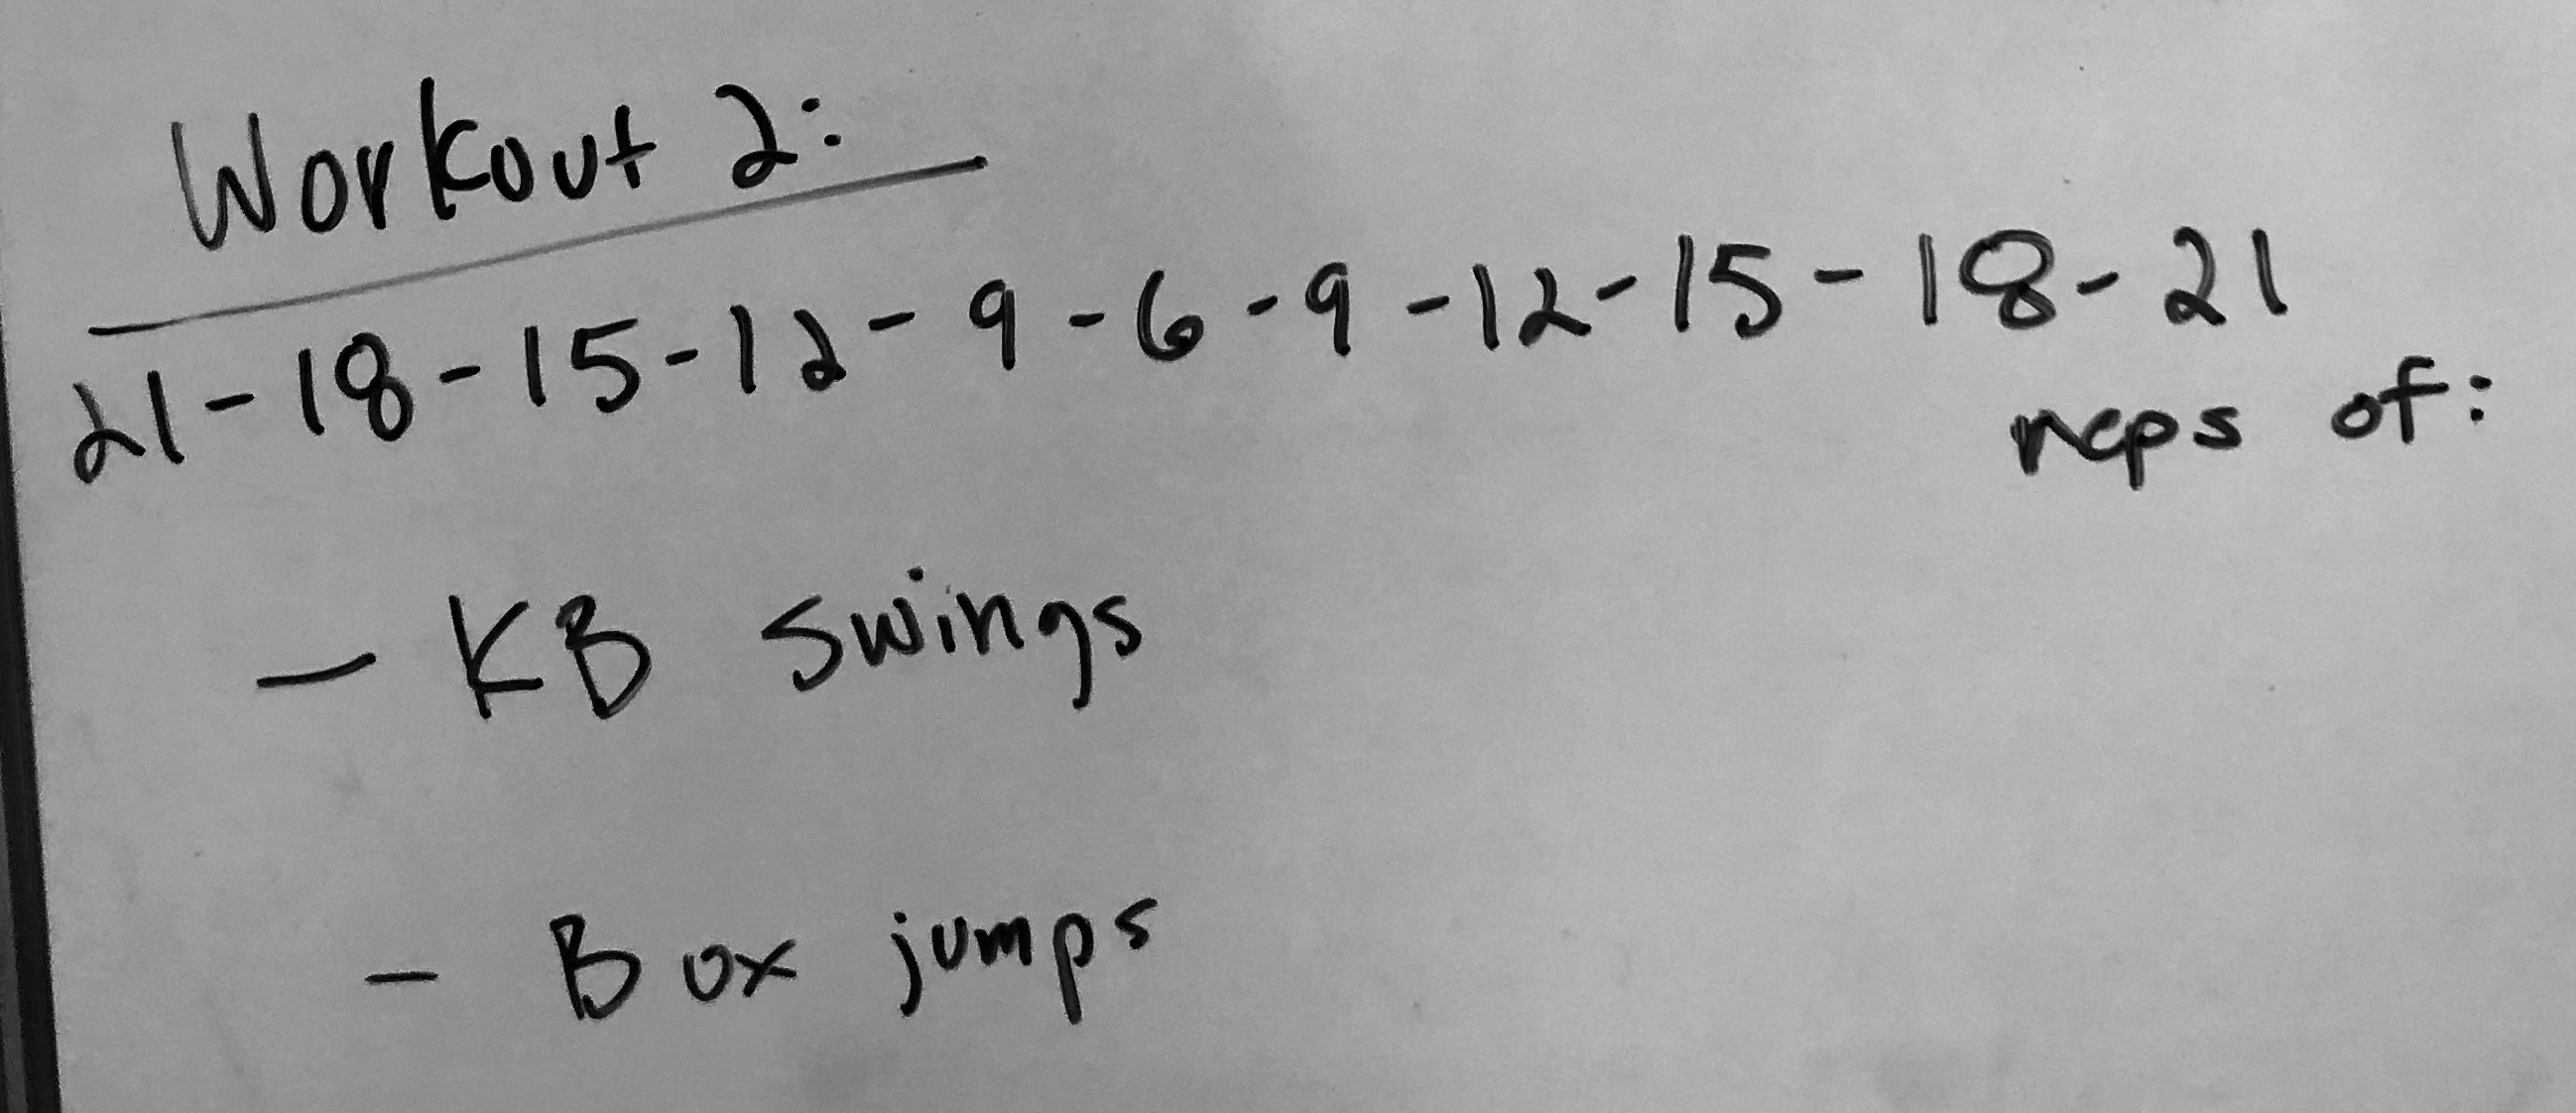 Workout 2:
21-18-15-12-9-6-9-12-15-18-21
reps of:
- KB swings
- Box jumps